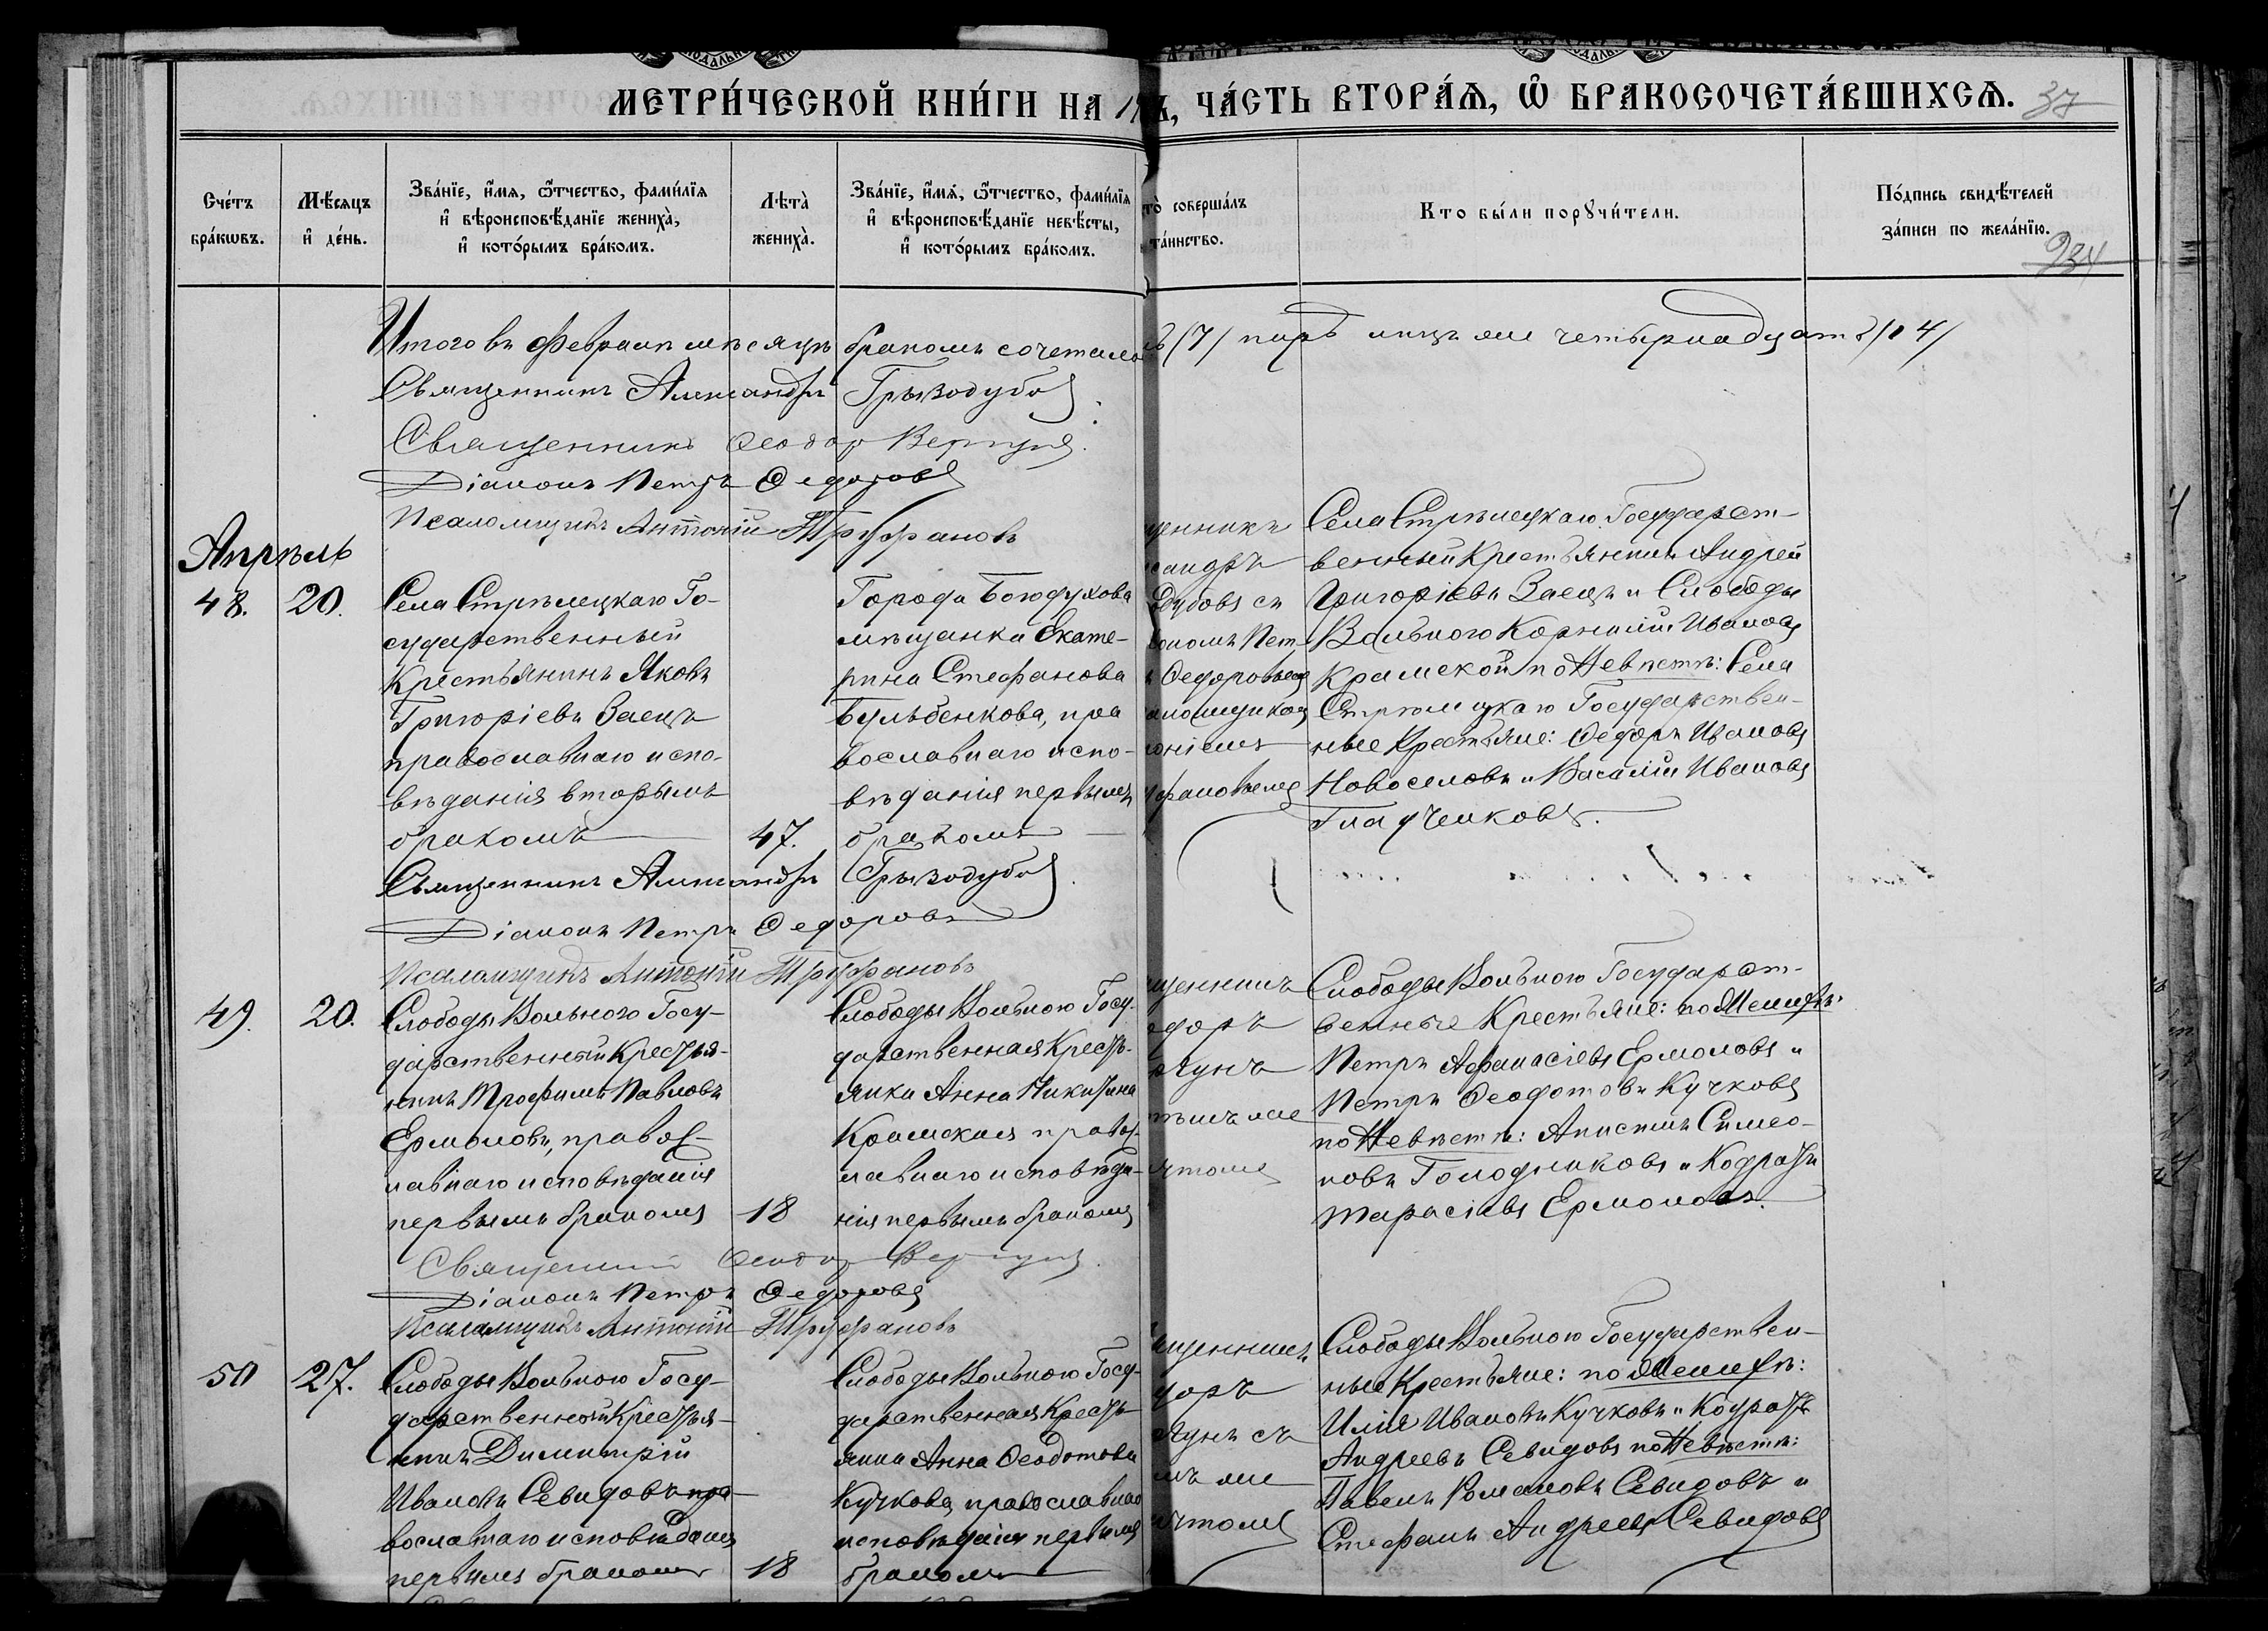 МЕТРИ́ЧЕСКОЙ КНИ́ГИ НА 18
Ъ, ЧА́СТЬ ВТОРА́Ѧ, Ѽ БРАКОСОЧЕТА́ВШИХСѦ.
37
Сче́тъ бра́кѡвъ.
Мѣ́сяцъ и҆ де́нь.
Зва́нїе, и҆́мя, ѻ҆́тчество, фами́лїя и҆ вѣроисповѣ́данїе жениха̀, и҆ кото́рымъ бра́комъ.
Лѣта̀ жениха̀.
Зва́нїе, и҆́мя, ѻ҆́тчество, фами́лїя и҆ вѣроисповѣ́данїе невѣ́сты, и҆ кото́рымъ бра́комъ.
то̀ соверша́лъ та́инство.
Кто бы́ли порꙋчи́тели.
По́дпись свидѣ́телей за́писи по жела́нїю.
234
Итого въ Февралѣ мѣсяцѣ бракомъ сочетало
ь /7/ паръ лицъ же четырнадцать /14/
Священникъ Александръ Грызодубовъ
Священникъ Ѳеодоръ Вергунъ
Діаконъ Петръ Ѳедоровъ
Псаломщикъ Антоній Труфановъ
Апрѣль
48.
20.
Села Стрѣлецкаго Го-
сударственный
Крестьянинъ Яковъ
Григоріевъ Заецъ
православнаго испо-
вѣданія вторымъ
бракомъ
47.
Города Богодухова
мѣщанка Екате-
рина Стефанова
Бульбенкова, пра
вославнаго испо-
вѣданія первымъ
бракомъ
щенникъ
сандръ
дубовъ съ
кономъ Пет-
Ѳедоровымъ
аломщикомъ
оніемъ
уфановымъ
Села Стрѣлецкаго Государст-
венный Крестьянинъ Андрей
Григоріевъ Заецъ и Слободы
Вольного Корнилій Ивановъ
Крамской по Невѣстѣ: Села
Стрѣлецкаго Государствен-
ные Крестьяне: Ѳедоръ Ивановъ
Новоселовъ и Василій Ивановъ
Гладченковъ.
Священникъ Александръ Грызодубовъ
Діаконъ Петръ Ѳедоровъ
Псаломщикъ Антоній Труфановъ
49.
20.
Слободы Вольного Госу-
дарственный Крестья-
нинъ Трофимъ Павловъ
Ермоловъ, правос-
лавнаго исповѣданія
первымъ бракомъ
18
Слободы Вольного Госу-
дарственная Кресть-
янка Анна Никитина
Крамская правос-
лавнаго исповѣда-
нія первымъ бракомъ
щенникъ
одоръ
ргунъ
тѣмъ же
Слободы Вольного Государст-
венные Крестьяне: по Женихѣ:
Петръ Афанасіевъ Ермоловъ и
Петръ Ѳеодотовъ Кучковъ
по Невѣстѣ: Анистимъ Симео-
новъ Голодниковъ и Кодратъ
Тарасіевъ Ермоловъ.
Священникъ Ѳеодоръ Вергунъ
Діаконъ Петръ Ѳедоровъ
Псаломщикъ Антоній Труфановъ
50
27.
Слободы Вольного Госу-
дарственный Крестья-
нинъ Димитрій
Ивановъ Севидовъ пра-
вославнаго исповѣданія
первымъ бракомъ
18
Слободы Вольного Госу-
дарственная Кресть-
янка Анна Ѳеодотова
Кучкова, православнаго
исповѣданія первымъ
бракомъ
щенникъ
доръ
гунъ съ
мъ же
Слободы Вольного Государствен-
ные Крестьяне: по Женихѣ:
Илія Ивановъ Кучковъ и Кодратъ
Андреевъ Севидовъ по Невѣстѣ:
Павелъ Романовъ Севидовъ и
Стефанъ Андреевъ Севидовъ